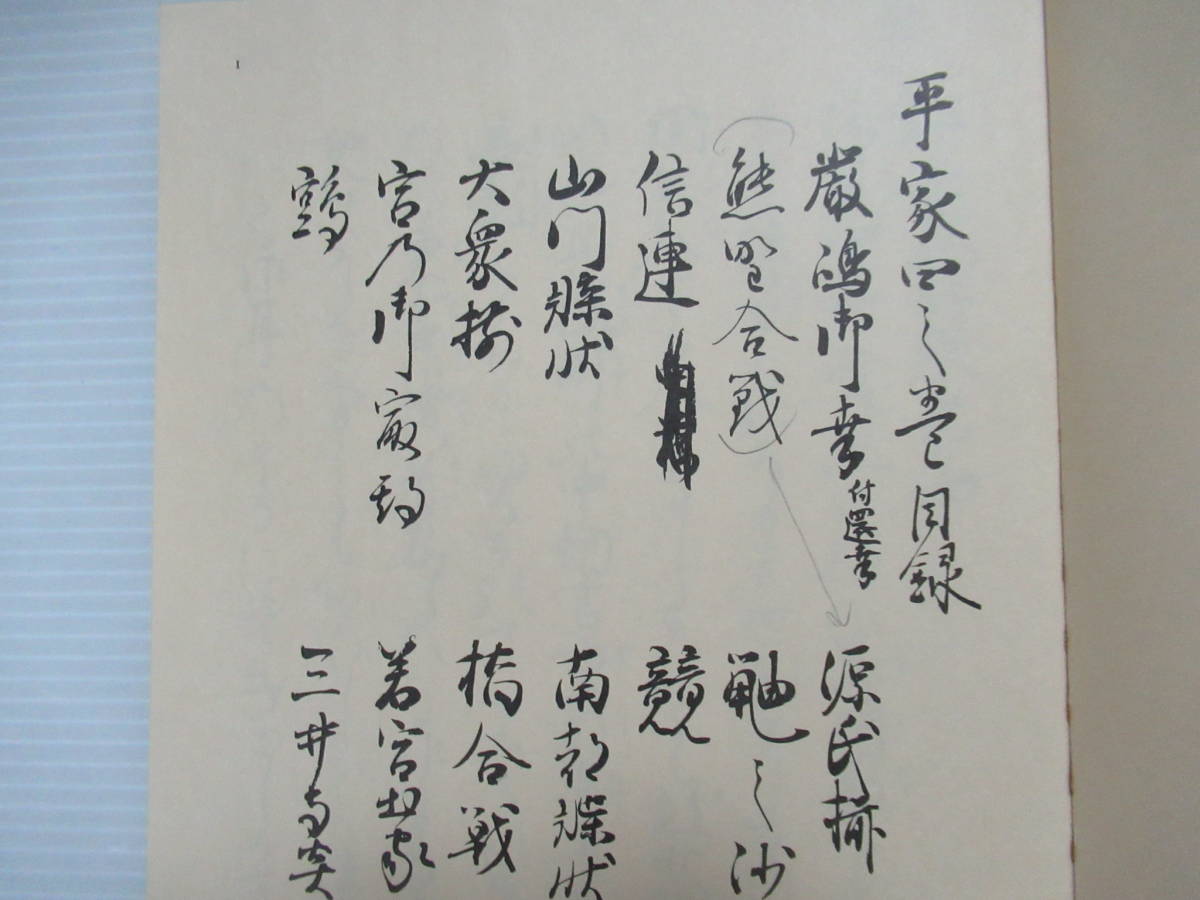 平家四之巻目録
巌嶋御幸付還幸 源氏揃
(熊野合戦) 鼬之沙
信連 競
山門牒状 南都牒状
大衆揃 橋合戦
宮乃御最期 若宮出家
鵼 三井寺炎
1